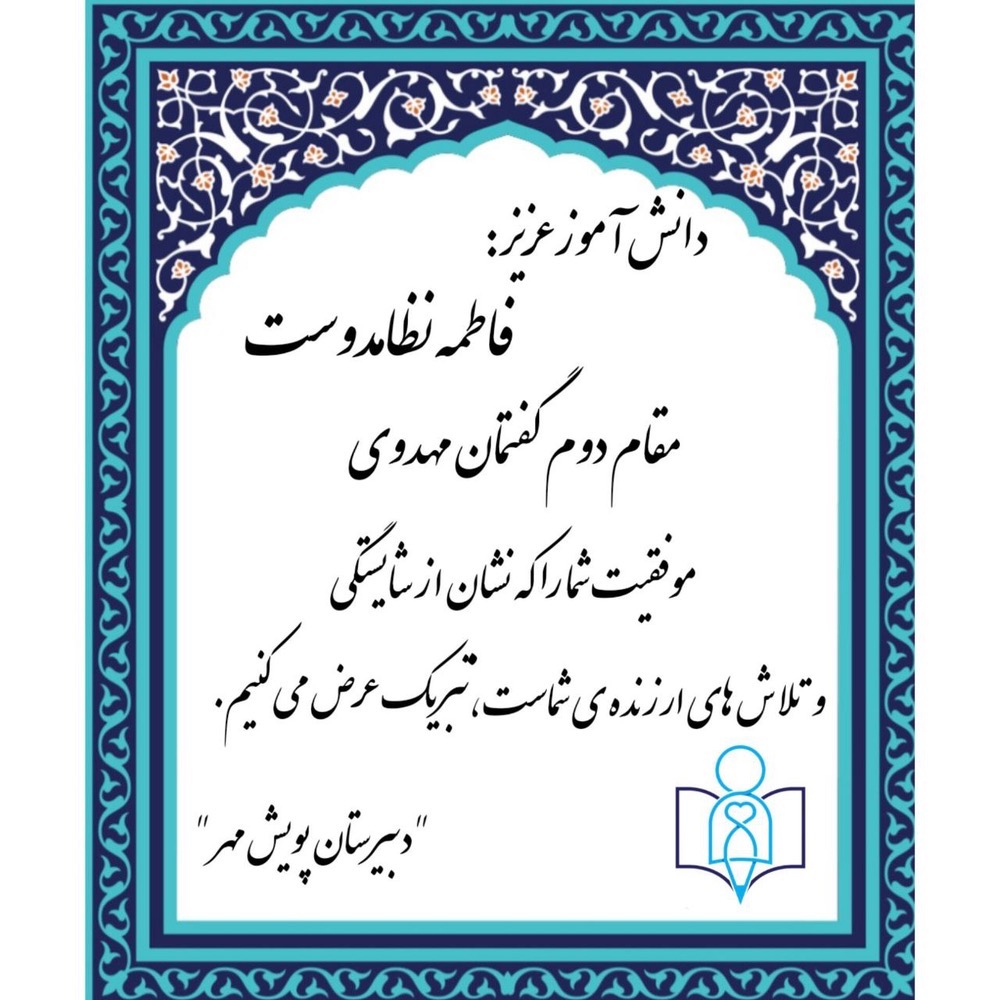 دانش آموز عزیز:
فاطمه نظامدوست
مقام دوم گفتمان مهدوی
موفقیت شما را که نشان از شایستگی
و تلاش های ارزنده ی شماست، تبریک عرض می کنیم.
"دبیرستان پویش مهر"